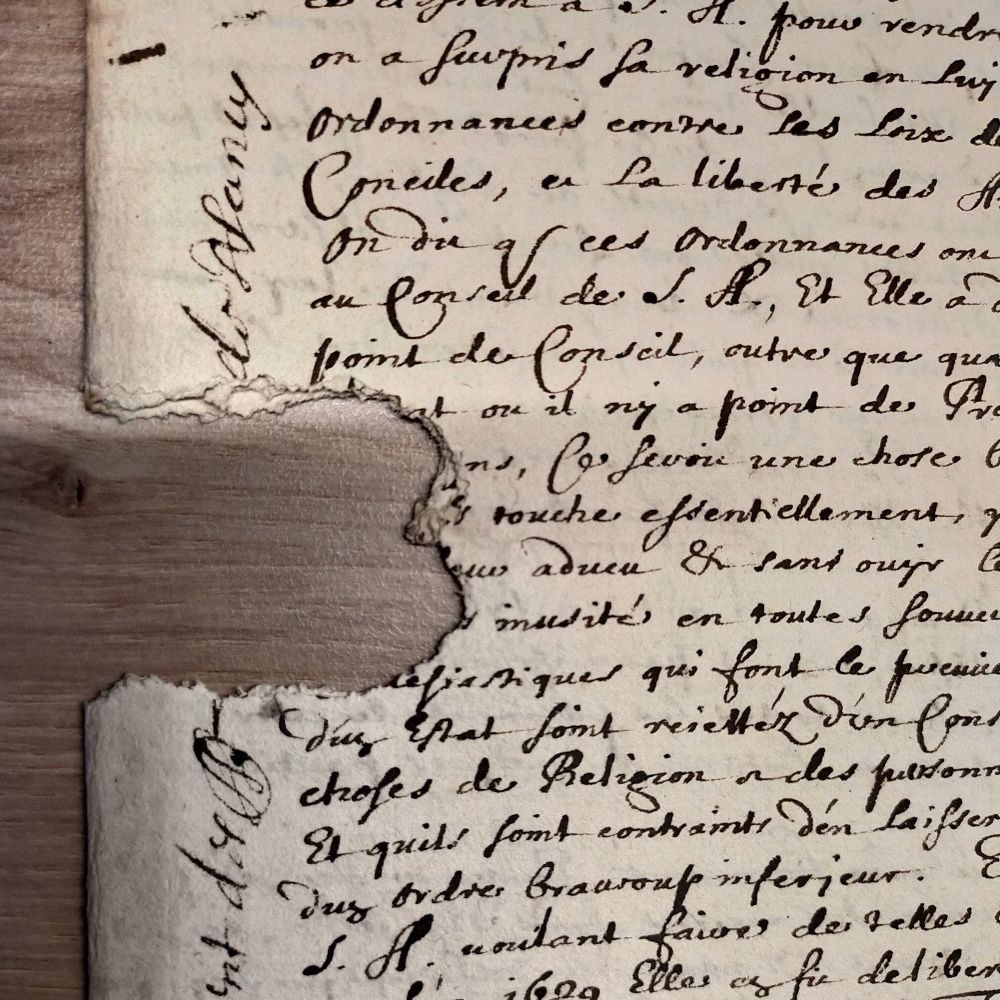 a S. A. pour rendre
on a surpris sa religion en luy
ordonnances contre les loix de
Conciles, et la liberté des
On dit qs ces ordonnances ont
au Conseil de S. A., Et Elle a
point de Conseil, outre que qua
nt ou il ny a point de Pre
ns, Ce seroit une chose b
s touche essentiellement, q
eur adveu & sans ouyr le
s inusité en toutes souver
lesiastiques qui font le premier
duz Estat soint reiettéz d'en Cons
choses de Religion a des personn
Et quils soint contraints d'en laisser
duz ordre beaucoup inferieur. E
S. A. voulant faire de telles
1629 Elle fit deliber